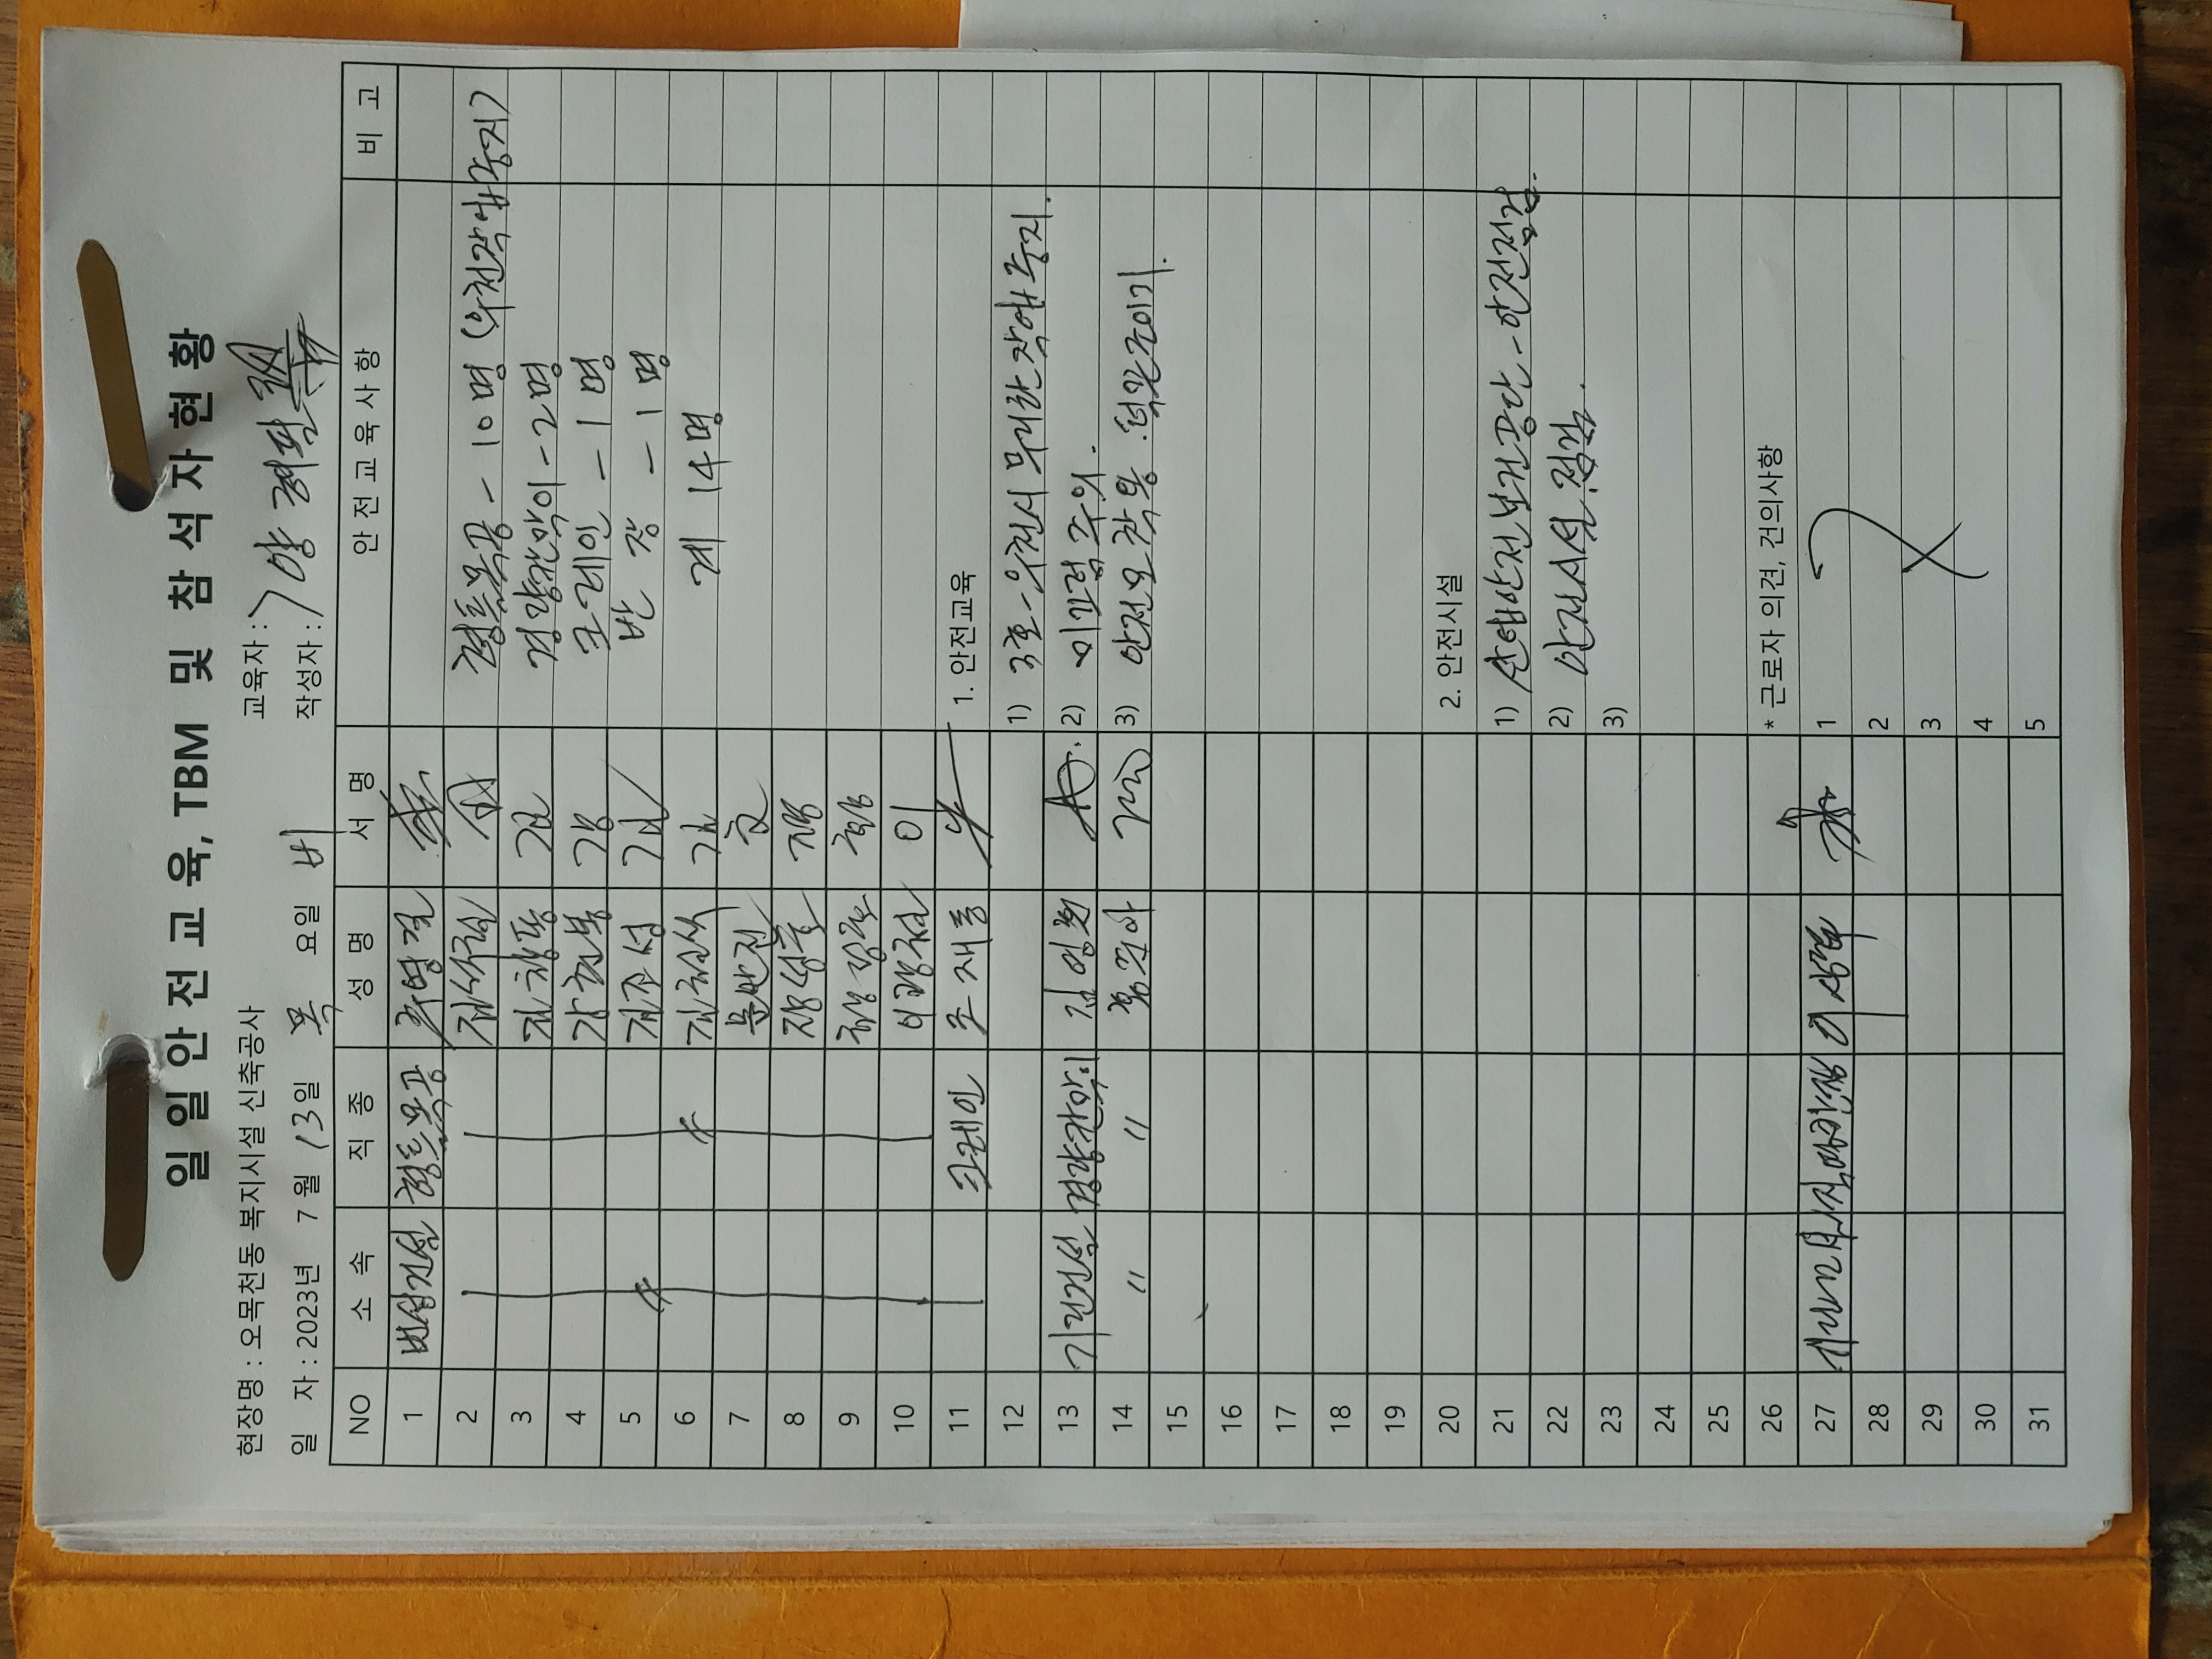 일일안전교육, TBM 및 참석자현황
현장명 : 오목천동 복지시설 신축공사
교육자 :
일 자 : 2023년 7월 13일 목 요일 비
작성자 : 양
NO 소속 직종 성명 서명 안전교육사항 비고
1 건설 형틀목공 주영길
2 형틀목공 - 10명 (우천작업중지)
3 김 경량칸막이 - 2명
4 강 크레인 - 1명
5 김조성 김 반장 - 1명
6 김 계 14명
7 문
8 장성호 장
9
10 이광철 이
11 크레인 조재동 1. 안전교육
12 1) 3호 - 우천시 무리한 작업 중지.
13 기린건설 경량칸막이 김영희 2) 미끄럼 주의.
14 〃 〃 3) 안전모 착용. 턱끈조이기.
15
16
17
18
19
20 2. 안전시설
21 1) 산업안전보건공단 - 안전점검.
22 2) 안전시설 점검.
23 3)
24
25
26 * 근로자 의견, 건의사항
27 이상 1
28 2
29 3
30 4
31 5